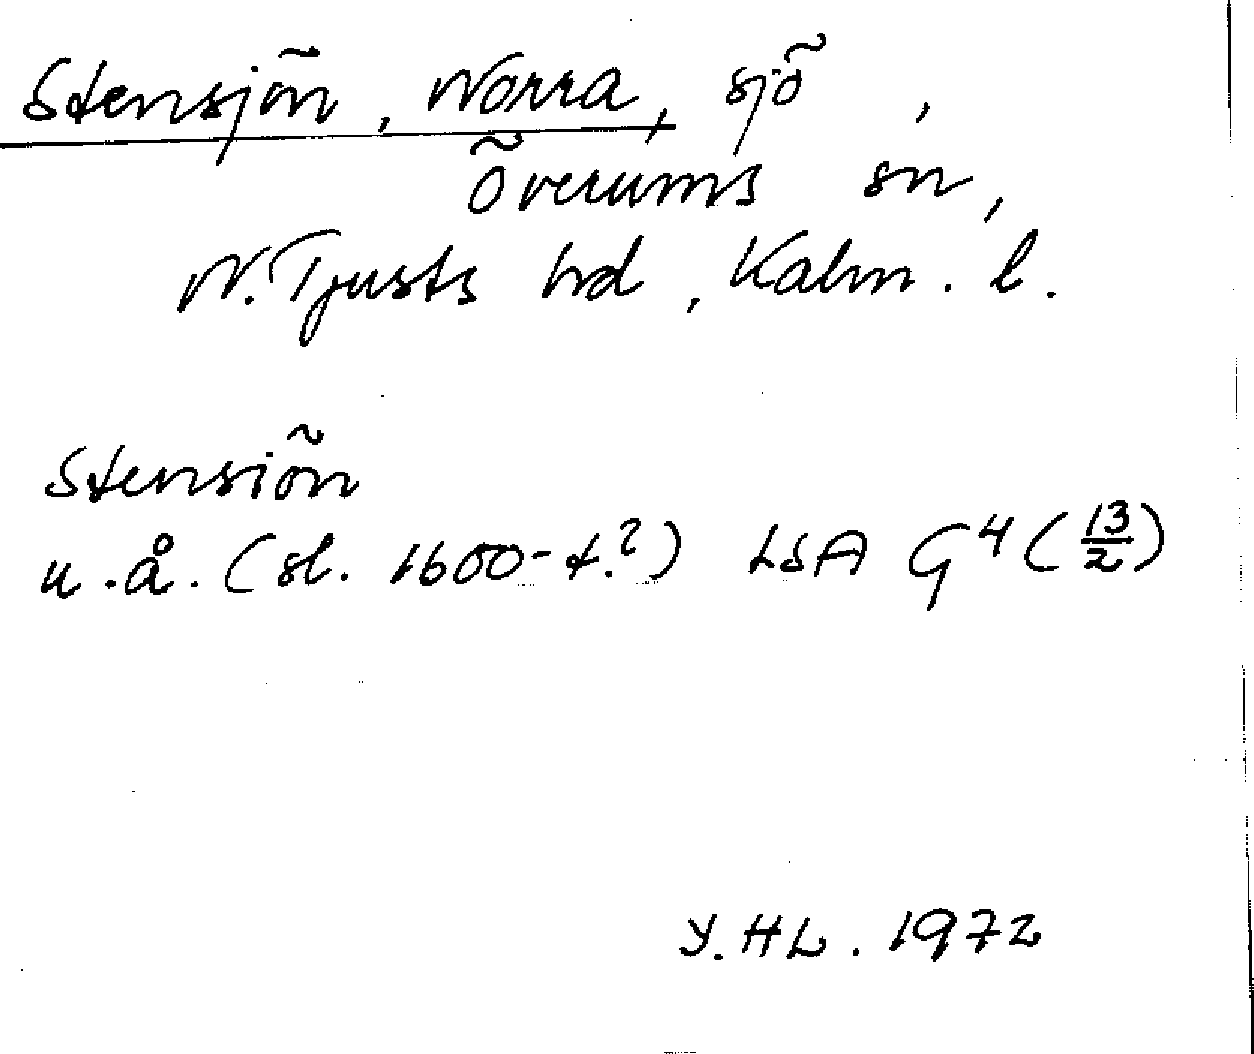 Stensjön, Norra, sjö,
Överums sn,
N. Tjusts hd, Kalm. l.
Stensiön
u.å. (sl. 1600-t.?) LSA G4 (13/2)
Y. HL. 1972